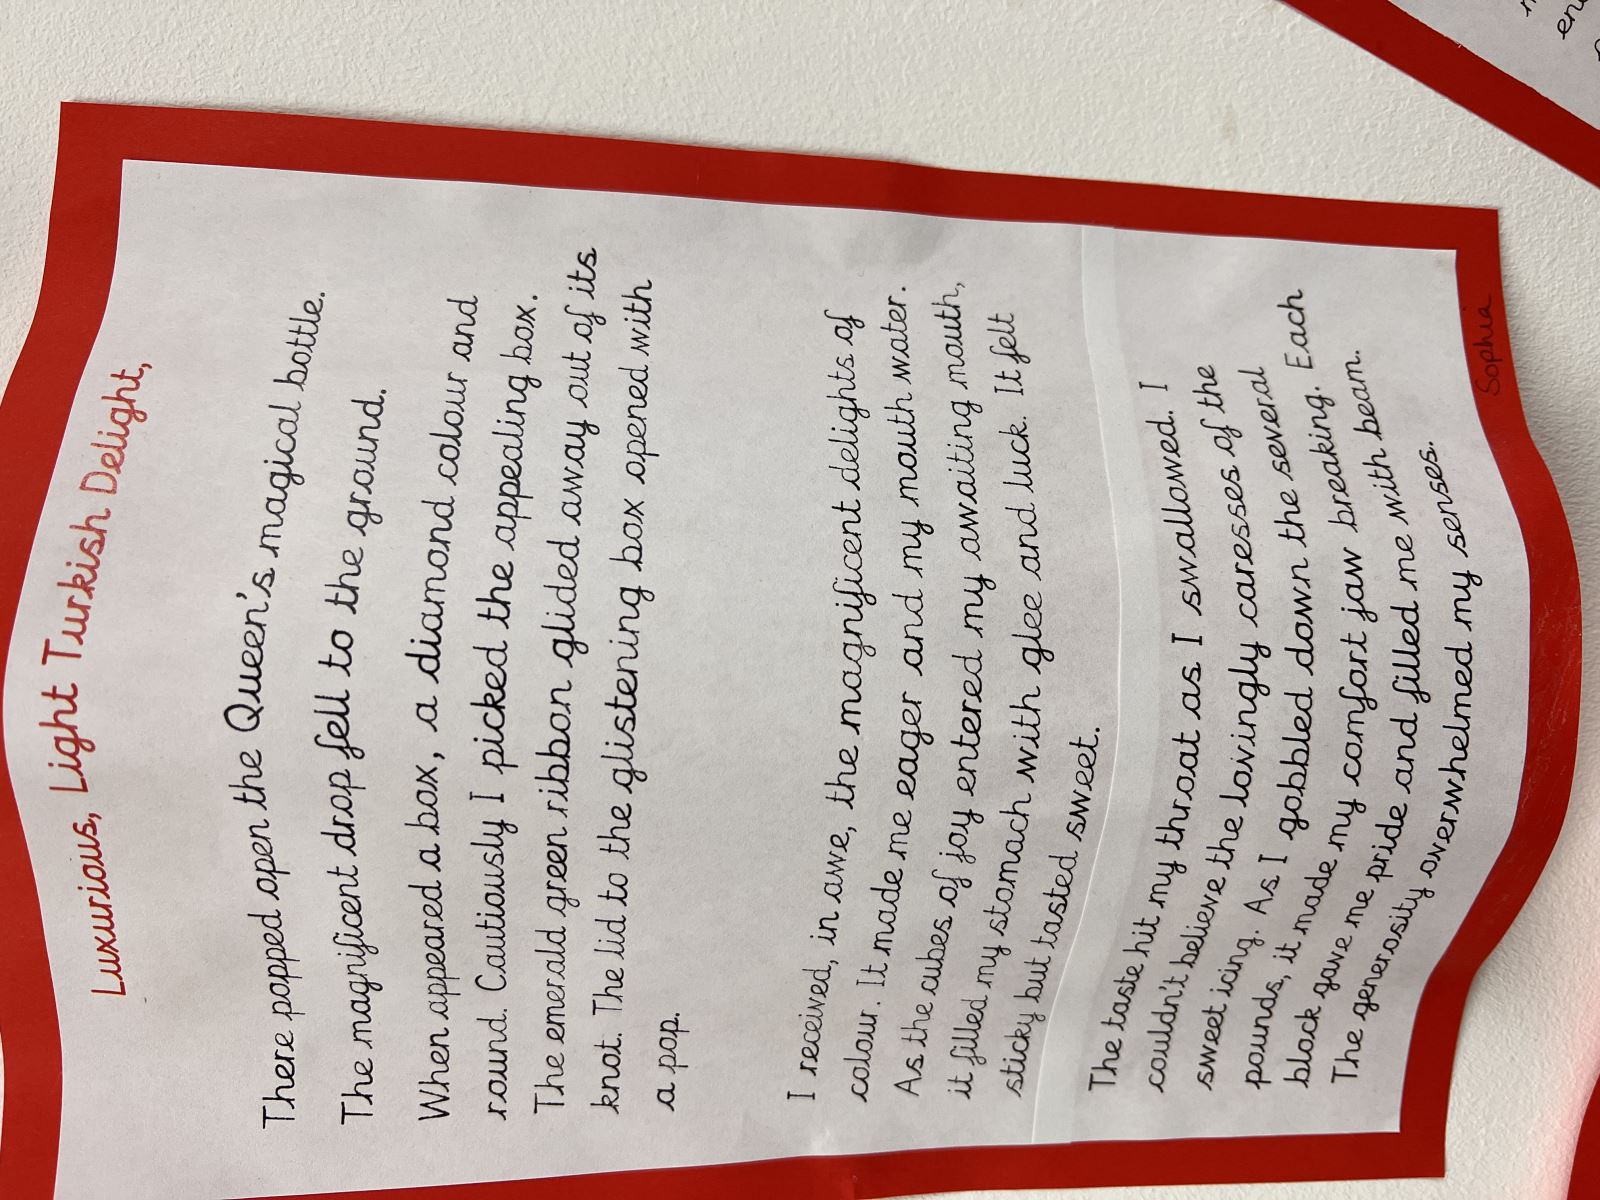 Luxurious, Light Turkish Delight,
There popped open the Queen's magical bottle.
The magnificent drop fell to the ground.
When appeared a box, a diamond colour and
round. Cautiously I picked the appealing box.
The emerald green ribbon glided away out of its
knot. The lid to the glistening box opened with
a pop.
I received, in awe, the magnificent delights of
colour. It made me eager and my mouth water.
As the cubes of joy entered my awaiting mouth,
it filled my stomach with glee and luck. It felt
sticky but tasted sweet.
The taste hit my throat as I swallowed. I
couldn't believe the lovingly caresses of the
sweet icing. As I gobbled down the several
pounds, it made my comfort jaw breaking. Each
block gave me pride and filled me with beam.
The generosity overwhelmed my senses.
Sophia